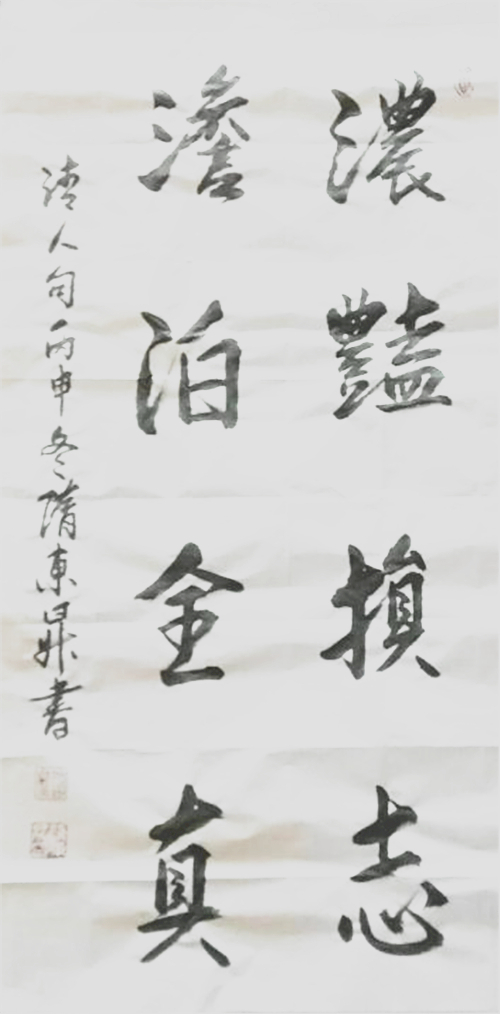 濃豔損志
澹泊全真
清人句丙申冬隋東鼎書